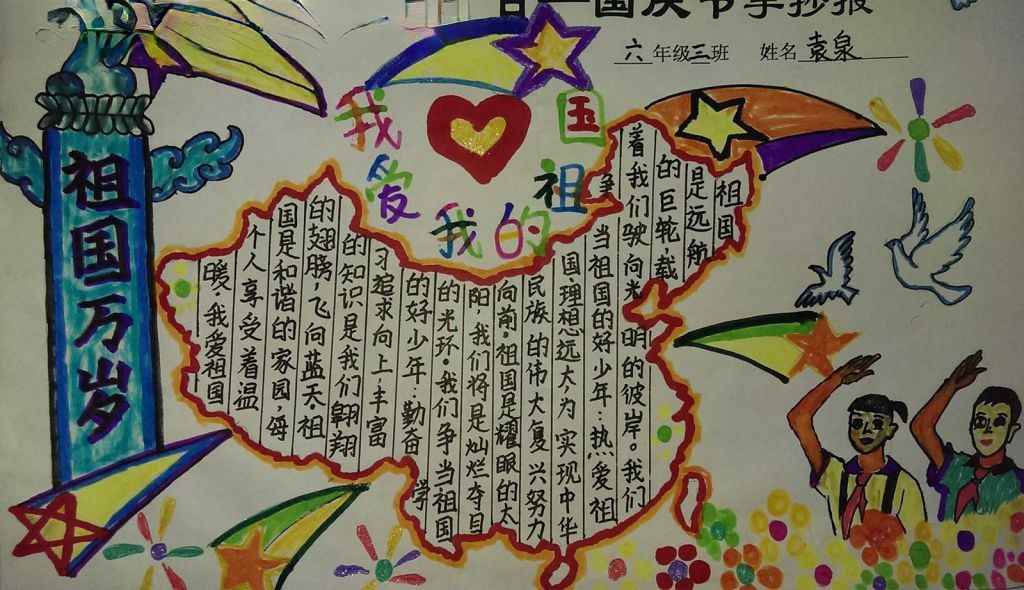 一国庆节手抄报
六年级三班 姓名 袁泉
我爱我的祖国
祖国万岁
祖国
是远航
的巨轮载
着我们驶向光明的彼岸。我们
争当祖国的好少年:热爱祖
国,理想远大,为实现中华
民族的伟大复兴努力
向前。祖国是耀眼的太
阳,我们将是灿烂夺目
的光环。我们争当祖国
的好少年,勤奋学
习追求向上,丰富
的知识是我们翱翔
的翅膀,飞向蓝天。祖
国是和谐的家园,每
个人享受着温
暖。我爱祖国